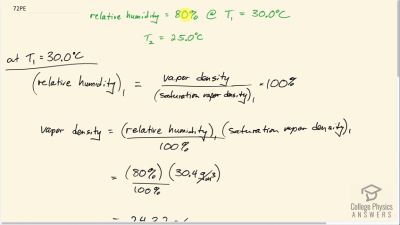 72PE
relative humidity = 80% @ T₁ = 30.0°C
T₂ = 25.0°C
at T₁ = 30.0°C
(relative humidity)₁ = vapor density / (saturation vapor density)₁ · 100%
vapor density = (relative humidity)₁ (saturation vapor density)₁ / 100%
= (80%) (30.4 g/m³) / 100%
College Physics
ANSWERS